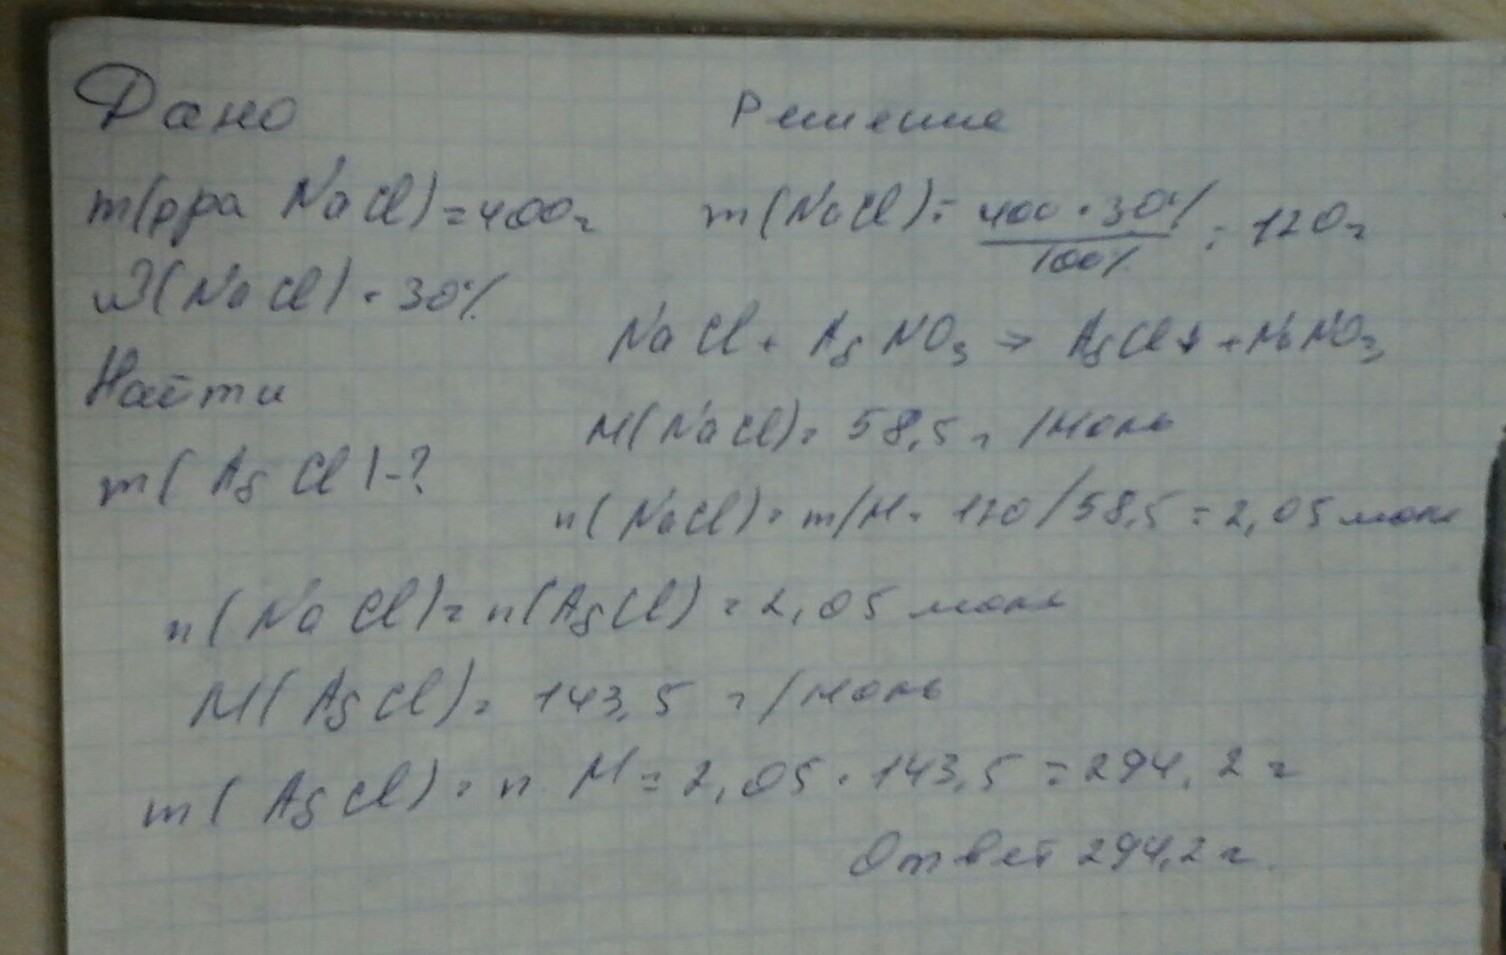 Дано
m(рра NaCl)=400г
W(NaCl)=30%
Найти
m(AgCl)-?
Решение
m(NaCl)= 400·30%/100% = 120г
NaCl + AgNO₃ → AgCl↓ + NaNO₃
M(NaCl)= 58,5 г/моль
n(NaCl)= m/M = 120/58,5 = 2,05 моль
n(NaCl)= n(AgCl) = 2,05 моль
M(AgCl)= 143,5 г/моль
m(AgCl) = n·M = 2,05·143,5 = 294,2 г
Ответ 294,2г.